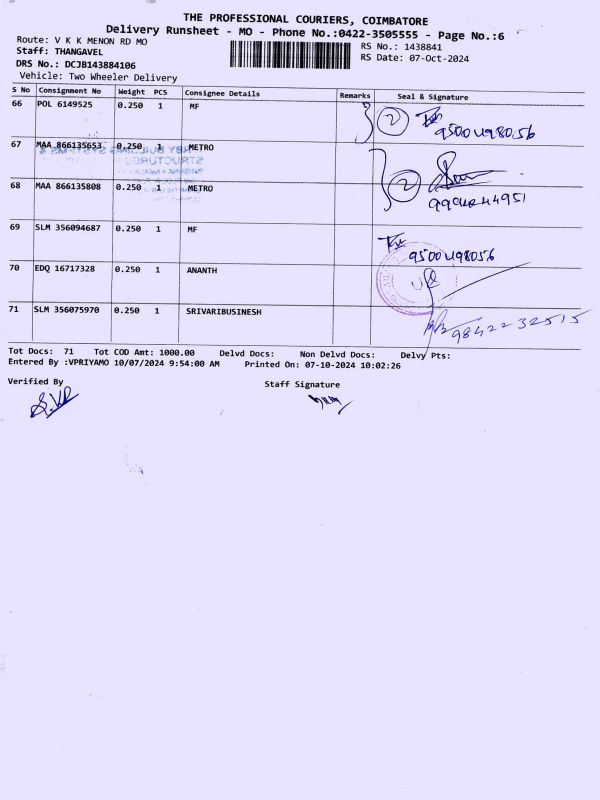 THE PROFESSIONAL COURIERS, COIMBATORE
Delivery Runsheet - MO - Phone No.:0422-3505555 - Page No.:6
Route: V K K MENON RD MO
RS No.: 1438841
Staff: THANGAVEL
RS Date: 07-Oct-2024
DRS No.: DCJB143884106
Vehicle: Two Wheeler Delivery
S No Consignment No Weight PCS Consignee Details Remarks Seal & Signature
66 POL 6149525 0.250 1 MF 2
9500498056
67 MAA 866135653 0.250 1 METRO
STRUCTURE
2
68 MAA 866135808 0.250 1 METRO
9994244951
69 SLM 356094687 0.250 1 MF
9500498056
70 EDQ 16717328 0.250 1 ANANTH
71 SLM 356075970 0.250 1 SRIVARIBUSINESH
9842232515
Tot Docs: 71 Tot COD Amt: 1000.00 Delvd Docs: Non Delvd Docs: Delvy Pts:
Entered By :VPRIYAMO 10/07/2024 9:54:00 AM Printed On: 07-10-2024 10:02:26
Verified By Staff Signature